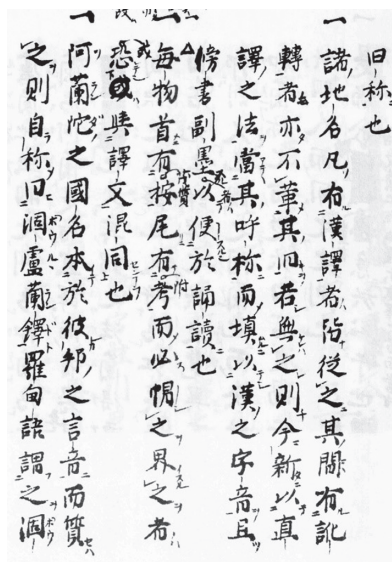 旧称也
一 諸地名凡有漢譯者皆從之其間有訛
轉者亦不革其旧若無之則今新以直
譯之法當其呼称而塡以漢之字音且
傍書副墨以便於誦讀也
一 每物首有按尾有考而必帽之界之者
恐或與譯文混同也
一 阿蘭陀之國名本於彼邦之言音而質
之則自称曰涸盧蘭鐸羅甸語謂之涸